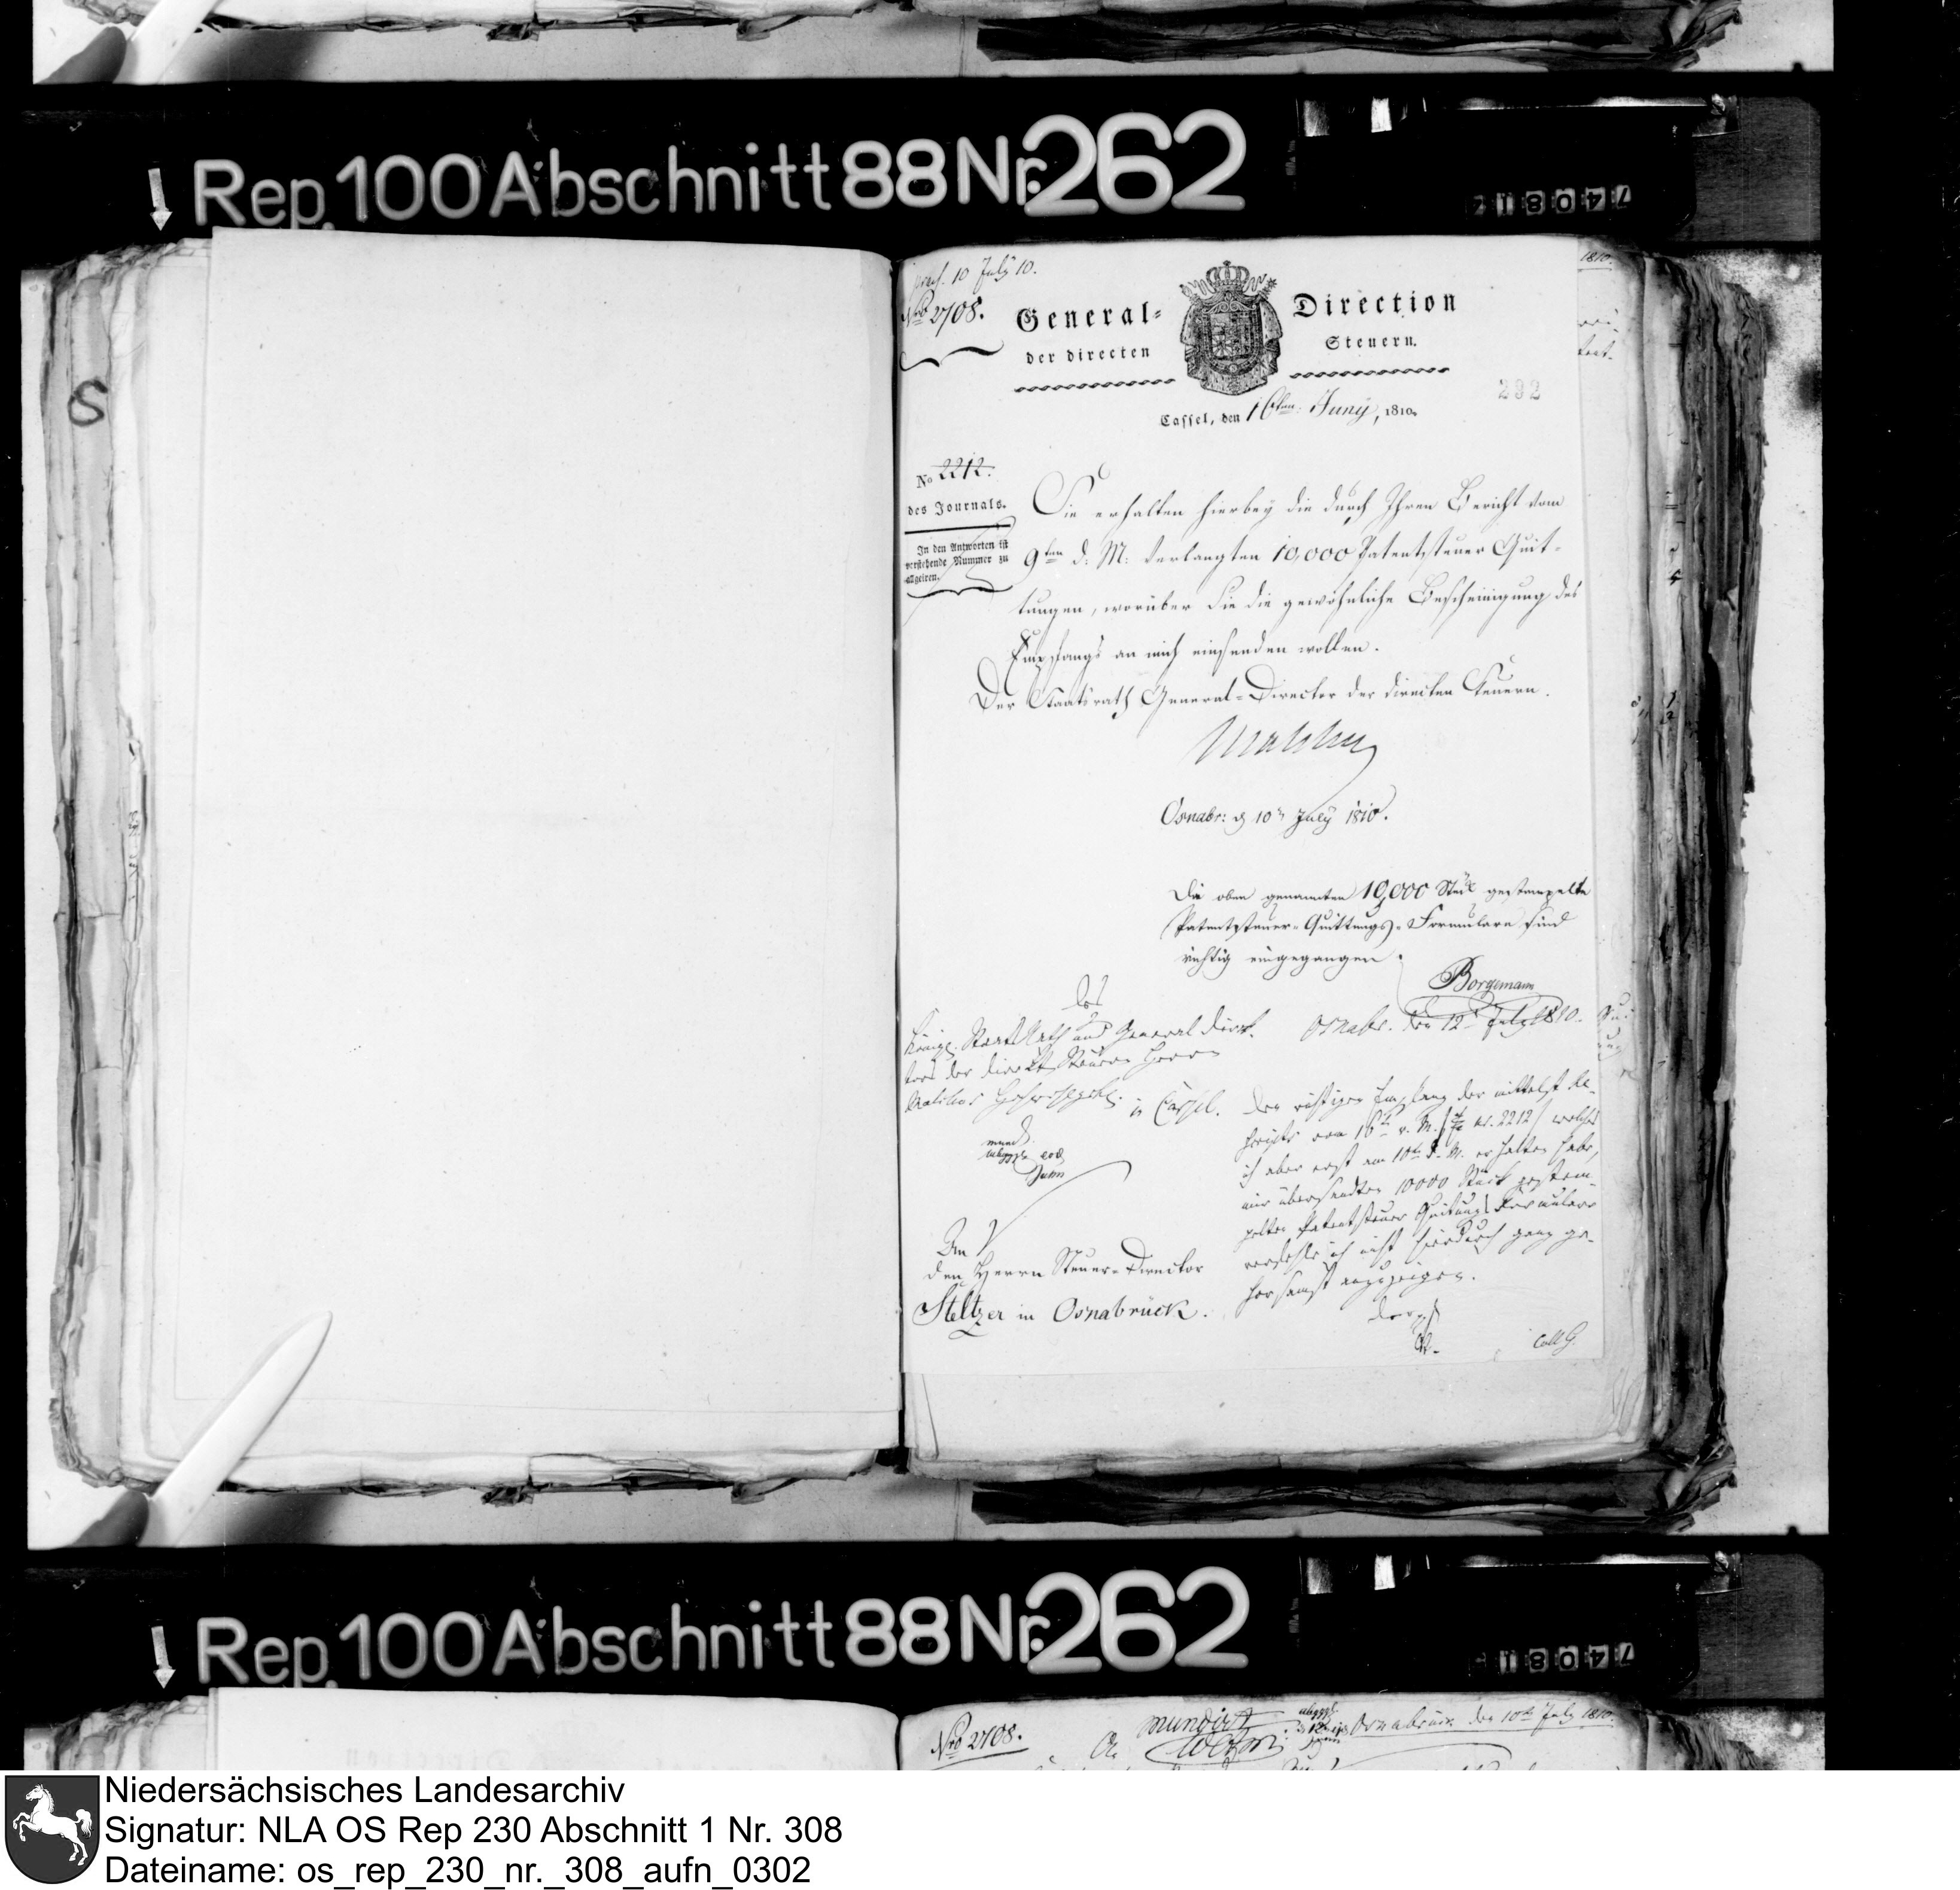 Rep. 100 Abschnitt 88 Nr. 262
740812
praes. 10 July 10.
Nro 2708.
General-Direction
der directen Steuern.
292
Cassel, den 16ten Juny, 1810.
No 2212.
des Journals.
In den Antworten ist
vorstehende Nummer zu
allegiren.
Sie erhalten hierbey die durch Ihren Bericht vom
9ten d. M. verlangten 10,000 Patentsteuer Quit-
tungen, worüber Sie die gewöhnliche Bescheinigung des
Empfangs an mich einsenden wollen.
Der Staatsrath General-Director der directen Steuern.
Malchus
Osnabr: d 10n July 1810.
Die oben genannten 10,000 Stück gestempelte
Patentsteuer-Quittungs-Formulare sind
richtig eingegangen.
Borgemann
Des
Königl. Staats Rath und General Direk-
tors der direkten Steuern Herrn
Malchus in Cassel.
mund.
abggn eod
Osnabr. den 12t July 1810.
Den richtigen Empfang der mittelst Re-
scripts vom 16t v. M. Nr. 2212 welches
ich aber erst am 10t d. M. erhalten habe,
mir übersandten 10000 Stück gestem-
pelten Patentsteuer Quitungs Formulare
verfehle ich nicht hierdurch ganz ge-
horsamst anzuzeigen.
Coll G.
An
den Herrn Steuer-Director
Steltzer in Osnabrück.
Rep. 100 Abschnitt 88 Nr. 262
74081
Nro 2708.
mundirt
Osnabrück den 10ten July 1810.
Niedersächsisches Landesarchiv
Signatur: NLA OS Rep 230 Abschnitt 1 Nr. 308
Dateiname: os_rep_230_nr._308_aufn_0302